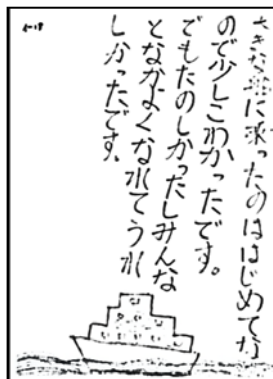 大きな船に乗ったのははじめてな
ので少しこわかったです。
でもたのしかったしみんな
となかよくなれてうれ
しかったです。